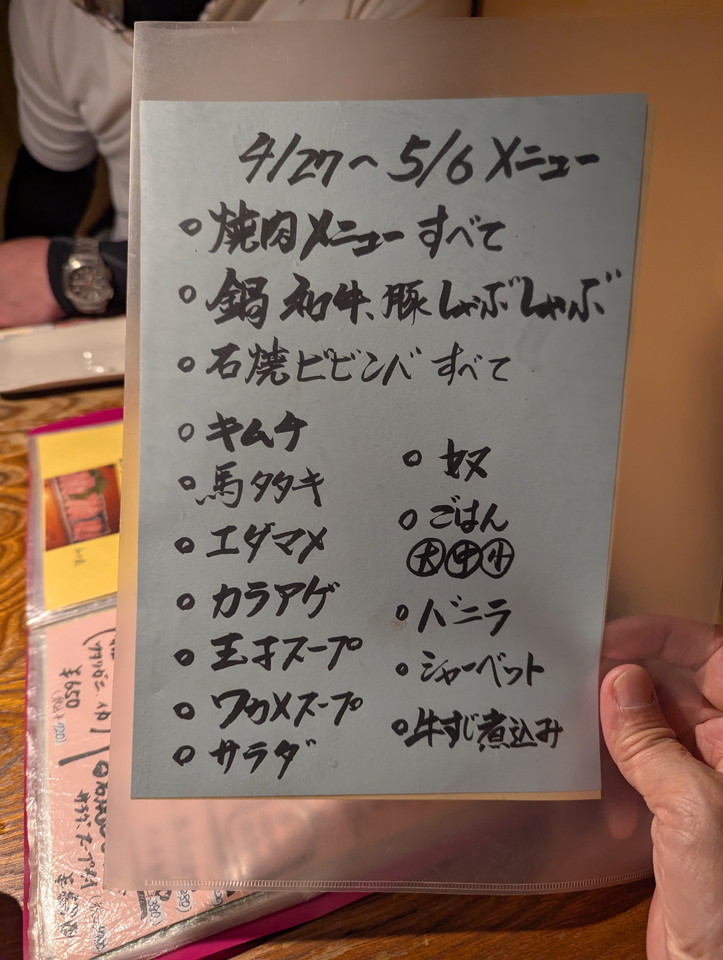 4/27〜5/6 メニュー
○焼肉メニューすべて
○鍋 和牛、豚しゃぶしゃぶ
○石焼ビビンバ すべて
○キムチ
○馬タタキ
○エダマメ
○カラアゲ
○玉子スープ
○ワカメスープ
○サラダ
○奴
○ごはん
大中小
○バニラ
○シャーベット
○牛すじ煮込み
¥650